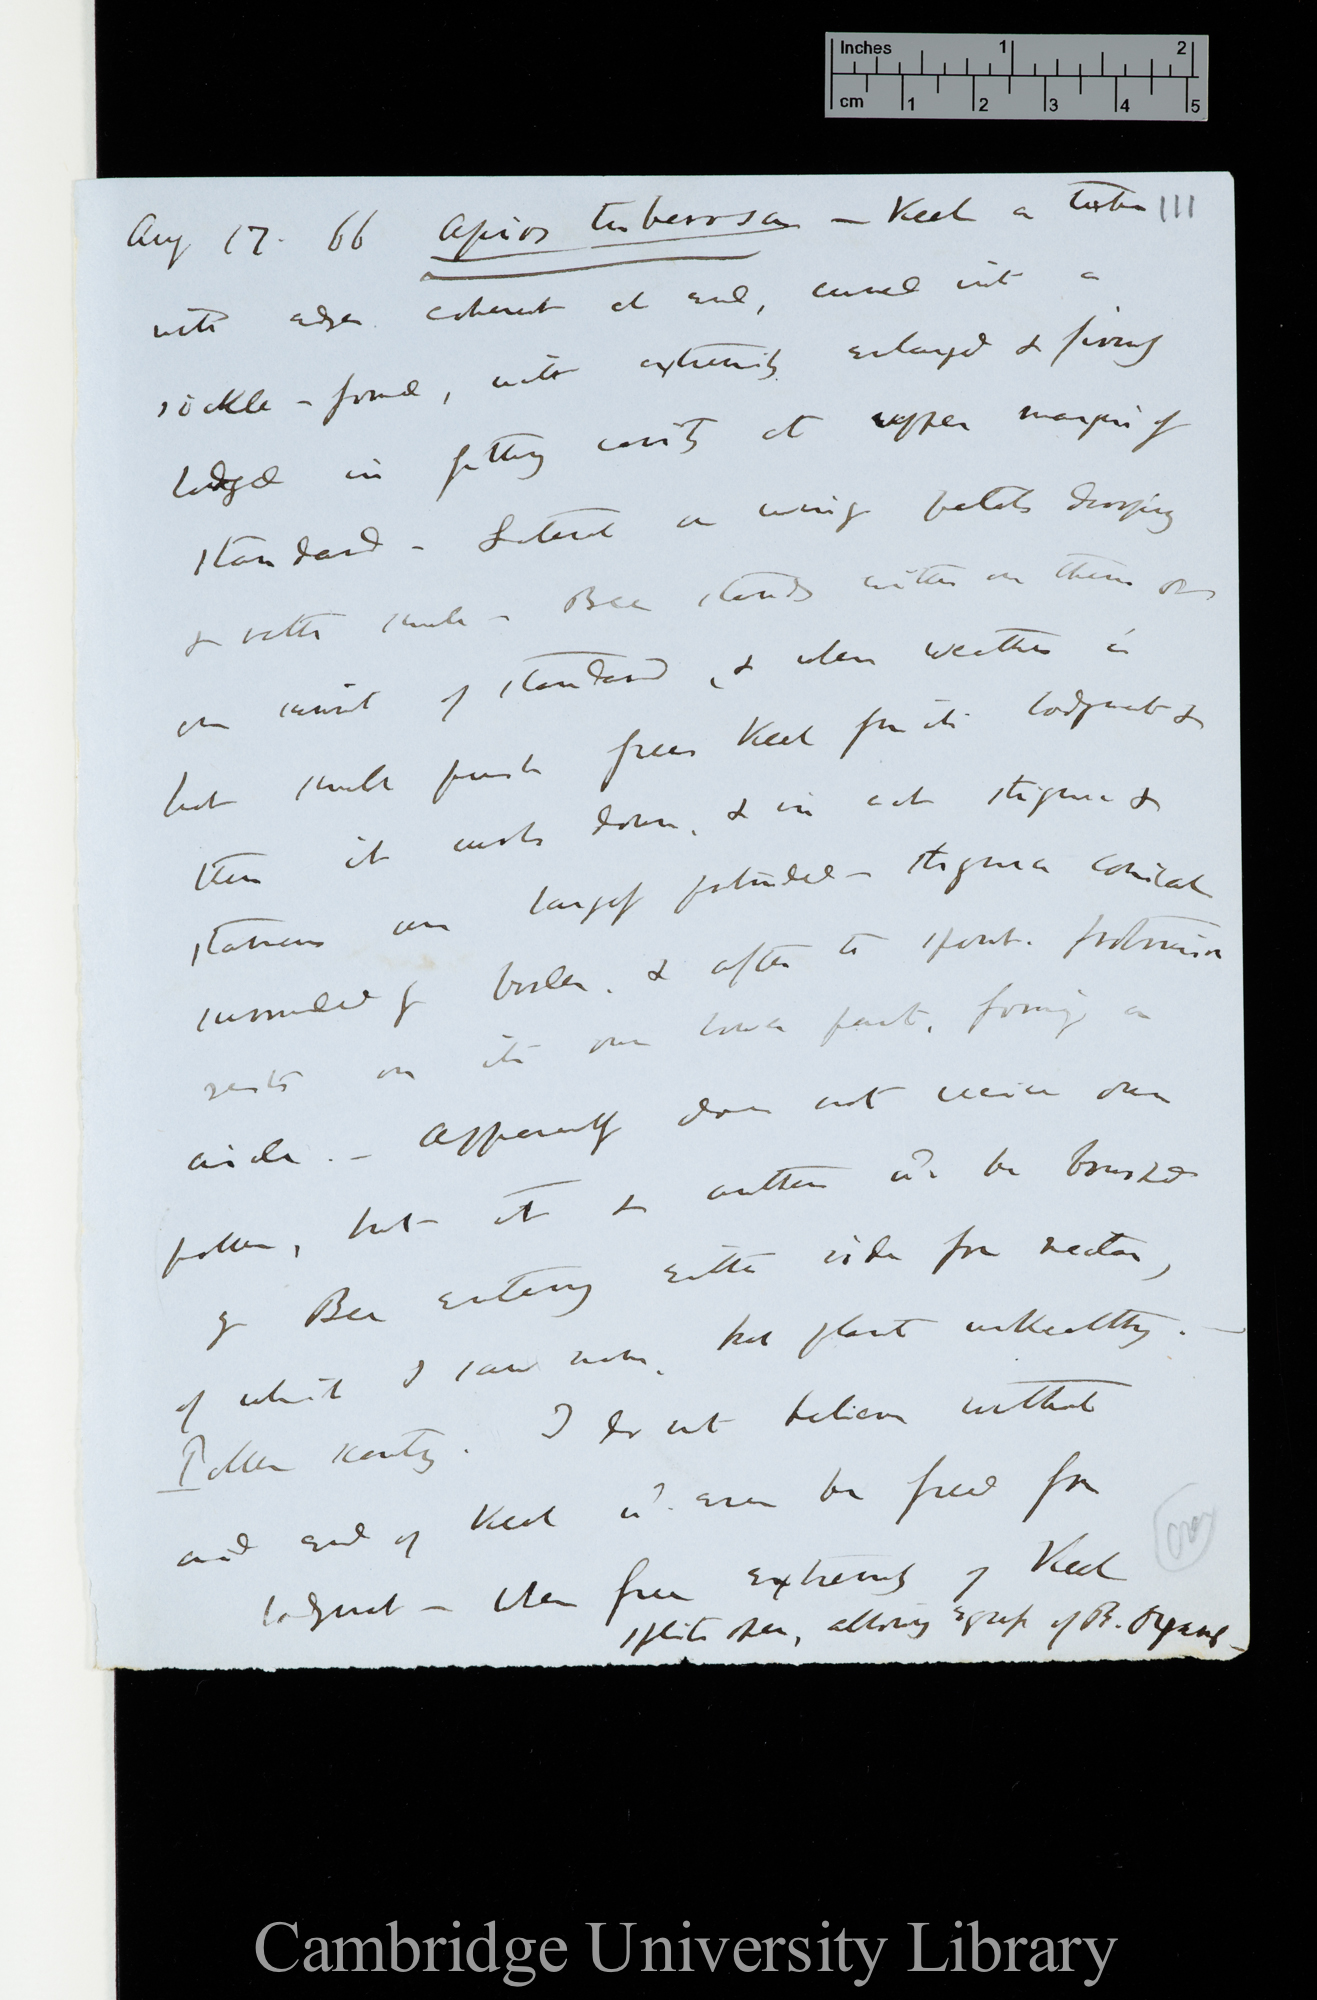 Inches 1 2
cm 1 2 3 4 5
111
Aug 17. 66 Apios tuberosa — Keel a tube
with edges coherent at end, curved into a
sickle-formed, with extremity enlarged & firmly
lodged in fitting cavity at upper margin of
standard — Lateral or wing petals drooping
& rather small — Bee stands either on them or
on summit of standard, & when weather is
hot small push frees Keel from its lodgment &
then it curls down, & in act stigma &
stamens are largely protruded — stigma conical
surrounded by border. & after to spont. protrusion
rests on its own lower part, forming a
circle. — Apparently does not receive own
pollen, but it & anthers wd be brushed
by Bee entering either side for nectar,
of which I saw none, but plant unhealthy. —
Pollen scanty. I do not believe without
aid end of Keel wd. ever be freed from
lodgment — When free extremity of Keel
splits open, allowing egress of R. Organs —
over
Cambridge University Library